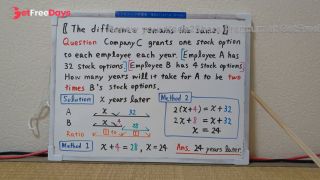 GetFreeDays
〖 The difference remains the same. 〗
Question Company C grants one stock option
to each employee each year. [Employee A has
32 stock options.] [Employee B has 4 stock options.]
How many years will it take for A to be two
times B's stock options.
Solution x years later
A x 32
B x 4 28
Ratio
Method 1 x+4 = 28, x = 24
Method 2
2(x+4) = x+32
2x+8 = x+32
x = 24
Ans. 24 years later